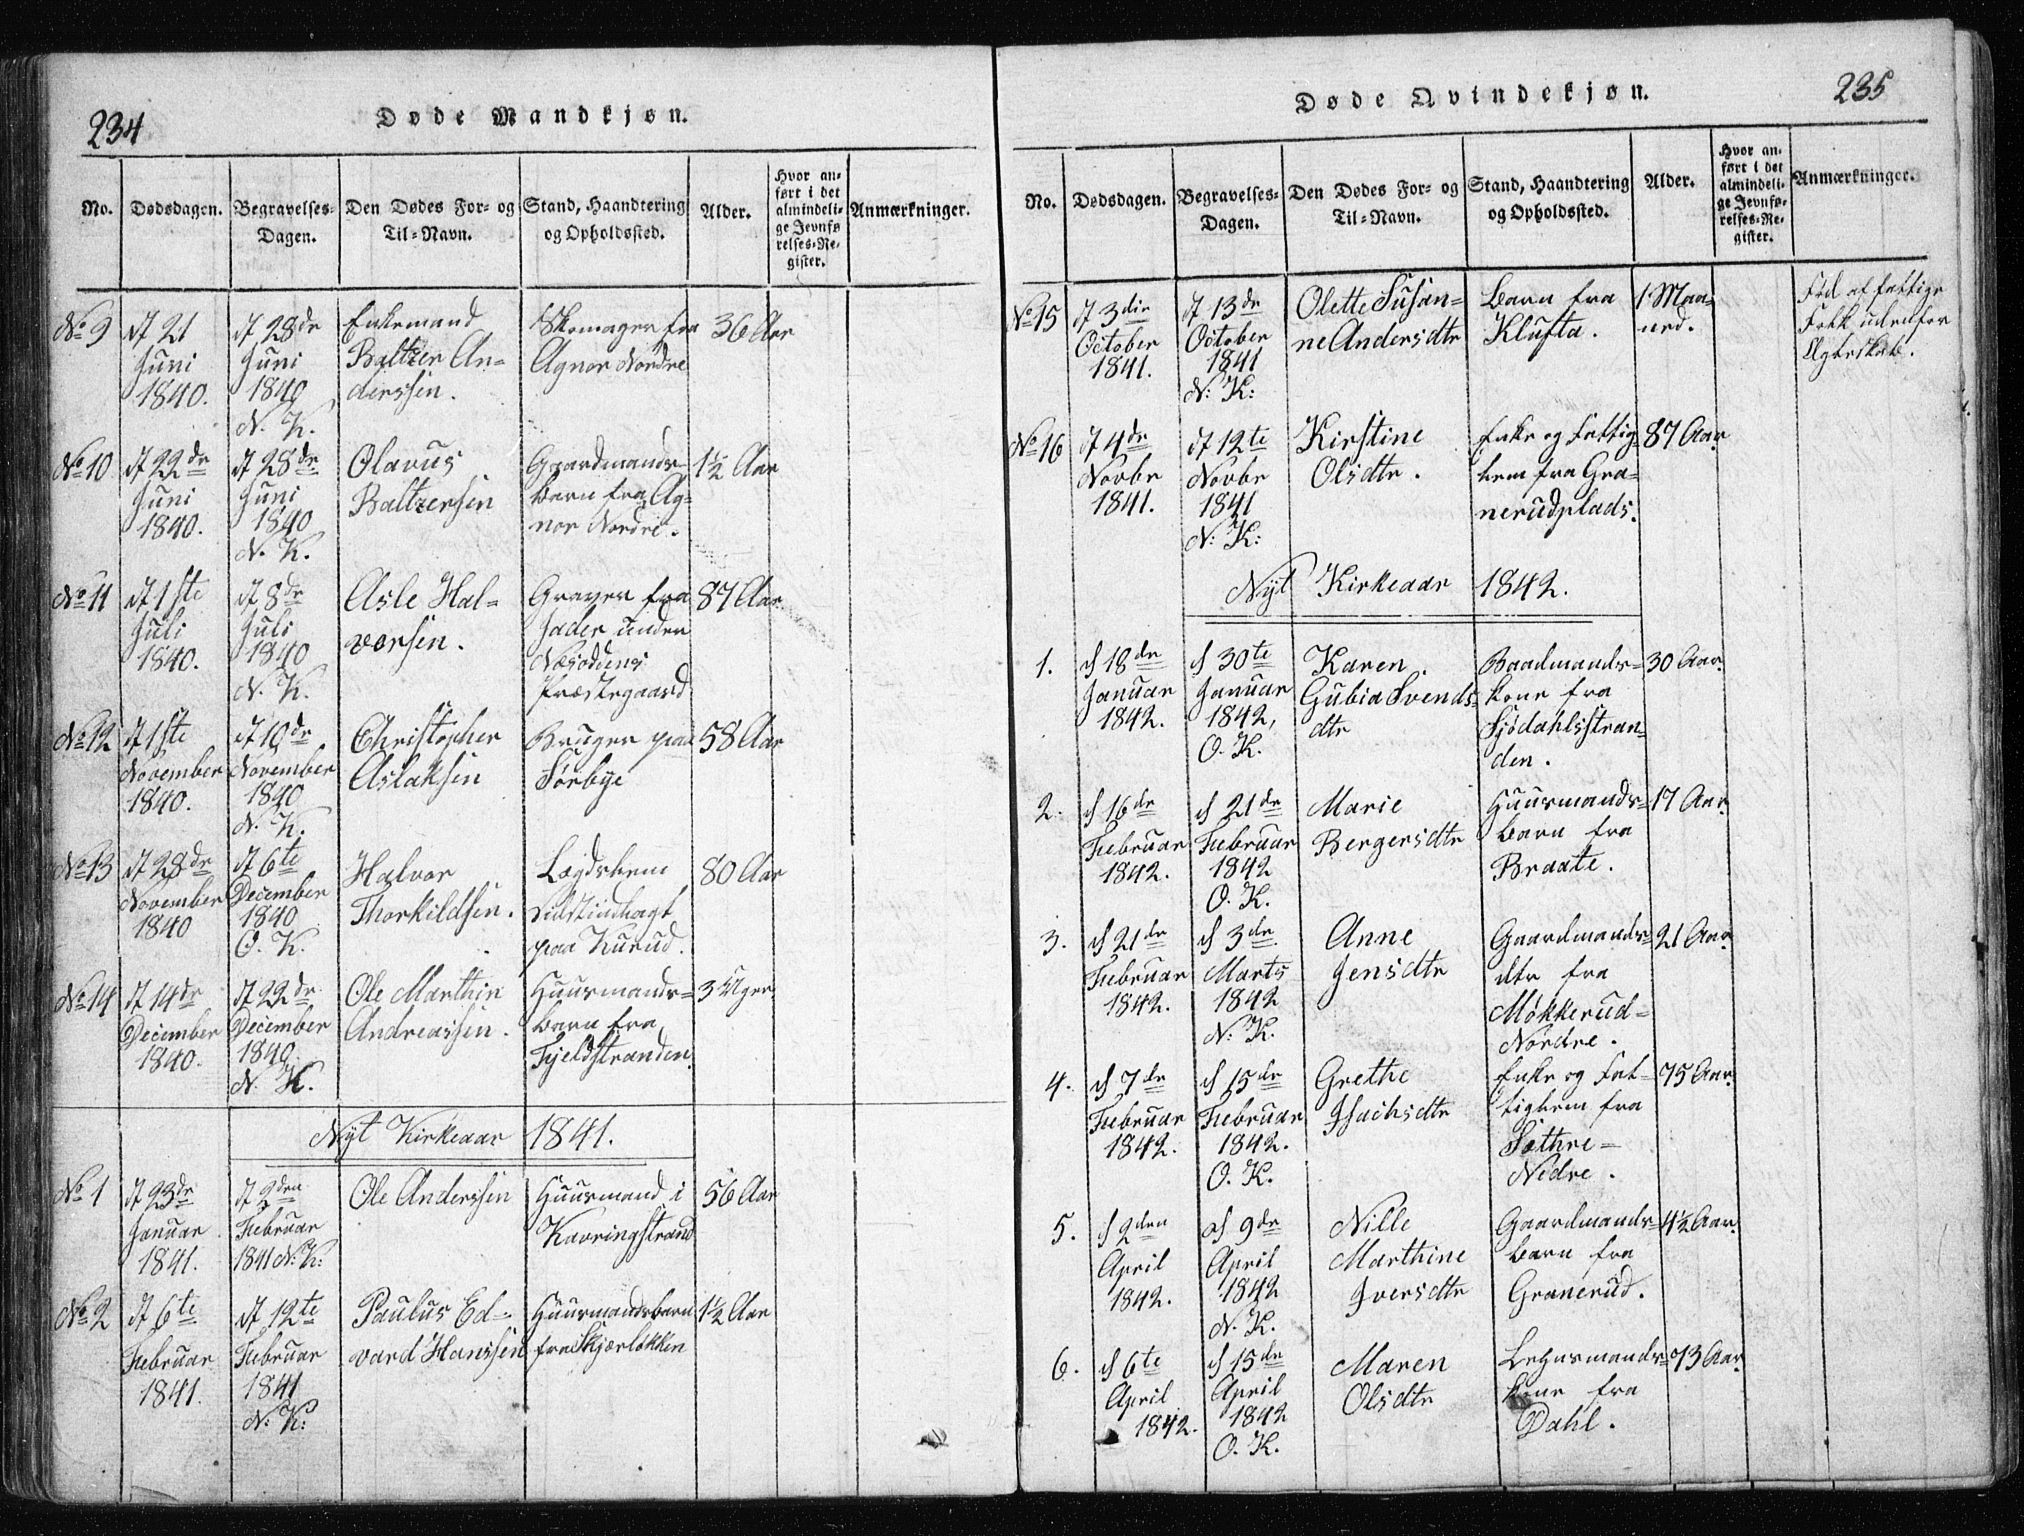 234
Døde Mandkjøn.
No.
Dødsdagen.
Begravelses-
Dagen.
Den Dødes For- og
Til-Navn.
Stand, Haandtering
og Opholdssted.
Alder.
Hvor an-
ført i det
almindeli-
ge Jevnfø
relses-Re-
gister.
Anmærkninger.
No 9
d 21
Juni
1840.
d 28de
Juni
1840
N. K.
Enkemand
Baltzer An-
derssen.
Skomager fra
Agnor Nordre
36 Aar
No 10
d 22de
Juni
1840.
d 28de
Juni
1840
N. K.
Olavus
Baltzersen
Gaardmands-
barn fra Ag-
nor Nordre.
1½ Aar
No 11
d 1ste
Juli
1840.
d 8de
Juli
1840
N. K.
Asle Hal-
vorsen.
Graver fra
Jader under
Næsoddens
Præstegaard
87 Aar
No 12
d 1ste
November
1840.
d 10de
November
1840
N. K.
Christopher
Aslaksen
Bruger paa
Sørbye
58 Aar
No 13
d 28de
November
1840
d 6te
December
1840
O. K.
Halvor
Thorkildsen.
Lægdslem
sidst indlagt
paa Kurud.
80 Aar
No 14
d 14de
December
1840.
d 22de
December
1840
N. K.
Ole Marthin
Andreassen.
Huusmands-
barn fra
Fjeldstranden.
3 Uger
Nyt Kirkeaar 1841.
No 1
d 23de
Januar
1841.
d 2den
Februar
1841 N. K:
Ole Anderssen
Huusmand i
Kavringstrand
56 Aar
No 2
d 6te
Februar
1841.
d 12te
Februar
1841
N. K:
Paulus Ed-
vard Hanssen
Huusmandsbarn
fra Skjærløkken
1½ Aar
235
Døde Qvindekjøn.
No.
Dødsdagen.
Begravelses-
Dagen.
Den Dødes For- og
Til-Navn.
Stand, Haandtering
og Opholdssted.
Alder.
Hvor an-
ført i det
almindeli-
ge Jevnfø-
relses-Re-
gister.
Anmærkninger.
No 15
d 3die
October
1841.
d 13de
October
1841
N: K:
Olette Susan-
ne Andersdtr
Barn fra
Klufta.
1 Maa-
ned.
Fød af fattige
Folk udenfor
Ægteskab.
No 16
d 4de
Novbr
1841.
d 12te
Novbr
1841
N: K:
Kirstine
Olsdtr.
Enke og Fattig
lem fra Gra-
nerudplads.
87 Aar
Nyt Kirkeaar 1842.
1.
d 18de
Januar
1842.
d 30te
Januar
1842,
O. K.
Karen
Gubia Svends-
dtr
Baadmands-
kone fra
Fjødahlsstran-
den.
30 Aar
2.
d 16de
Februar
1842.
d 21de
Februar
1842
O. K.
Marie
Bergersdtr
Huusmands-
barn fra
Braate.
17 Aar
3.
d 21de
Februar
1842.
d 3de
Marts
1842
N. K.
Anne
Jensdtr
Gaardmands-
dtr fra
Møkkerud-
Nordre.
21 Aar
4.
d 7de
Februar
1842.
d 15de
Februar
1842.
O. K.
Grethe
Isachsdtr
Enke og Fat-
tiglem fra
Sæthre-
Nedre.
75 Aar
5.
d 2den
April
1842.
d 9de
April
1842
N. K.
Nille
Marthine
Iversdtr
Gaardmands-
barn fra
Granerud.
4½ Aar
6.
d 6te
April
1842.
d 15de
April
1842
O. K.
Maren
Olsdtr
kone fra
Dahl.
73 Aar